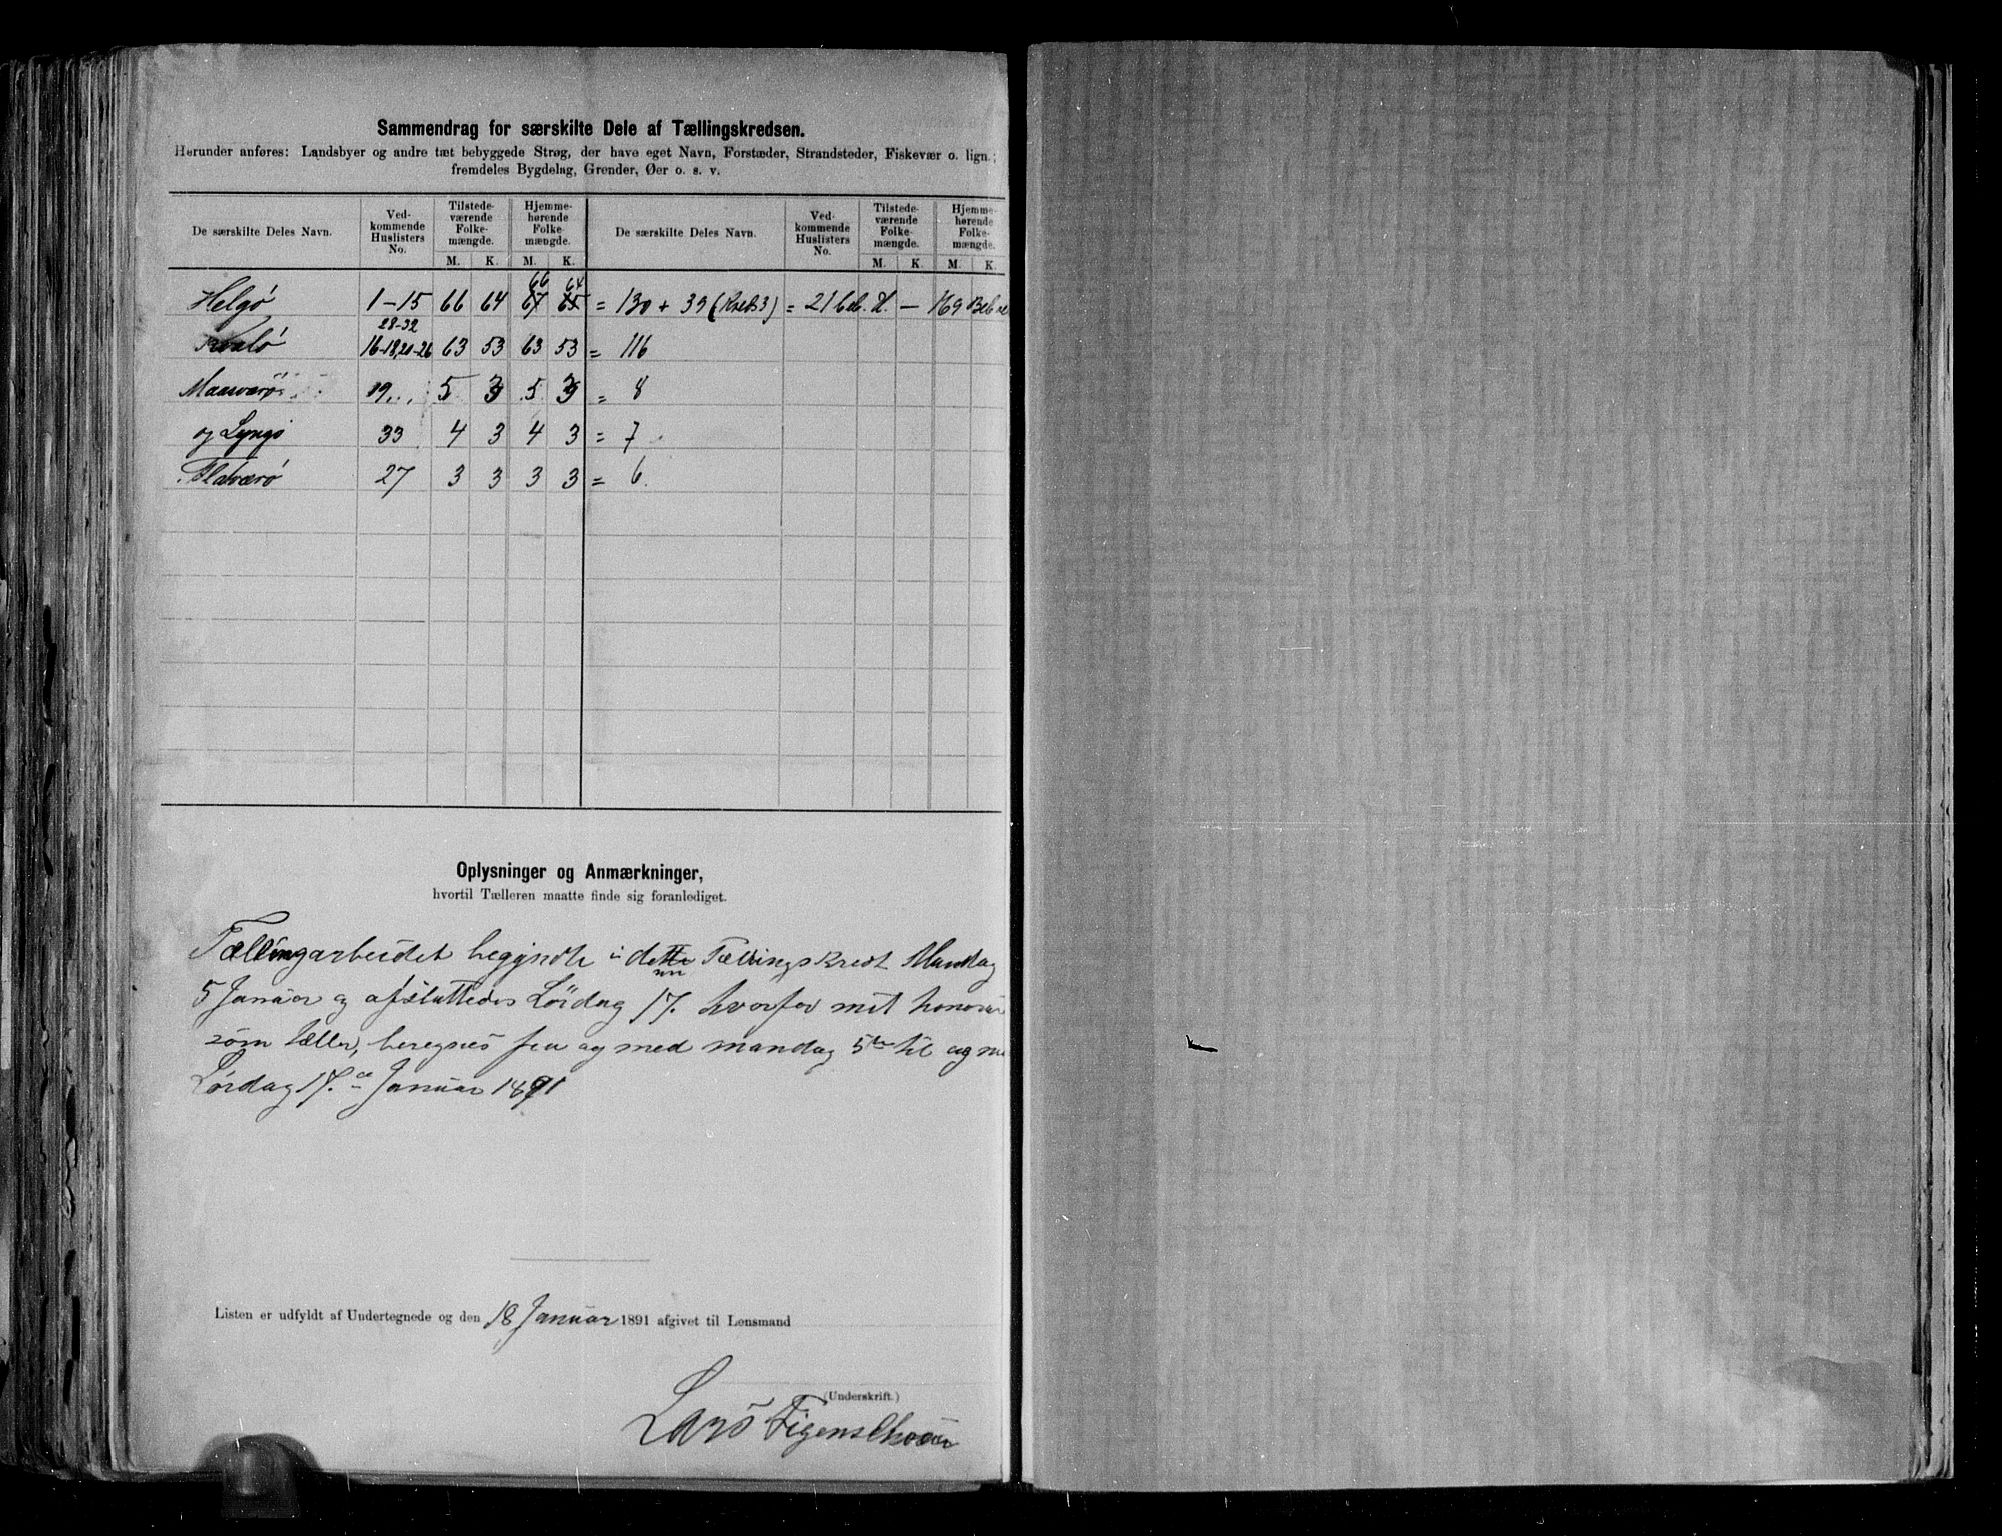 Sammendrag for særskilte Dele af Tællingskredsen.
Herunder anføres: Landsbyer og andre tæt bebyggede Strøg, der have eget Navn, Forstæder, Strandsteder, Fiskevær o. lign.;
fremdeles Bygdelag, Grender, Øer o. s. v.
De særskilte Deles Navn. Ved-kommende Huslisters No. Tilstede-værende Folke-mængde. Hjemme-hørende Folke-mængde. De særskilte Deles Navn. Ved-kommende Huslisters No. Tilstede-værende Folke-mængde. Hjemme-hørende Folke-mængde.
M. K. M. K. M. K. M. K.
66 64
Helgø 1-15 66 64 67 65 = 130 + 39 (Kreds 3) = 21 beb. H. — 169 Beb
28-32
16-18, 20-26 63 53 63 53 = 116
Maasværø 19 5 3 5 3 = 8
og Lyngø 33 4 3 4 3 = 7
Flatværø 27 3 3 3 3 = 6
Oplysninger og Anmærkninger,
hvortil Tælleren maatte finde sig foranlediget.
Tællingarbeidet begyndte i dette Tællingskreds Mandag
5 Januar og afsluttedes Lördag 17. hvorfor mit honorar
som tæller, beregnes fra og med mandag 5te til og
Lördag 17. Januar 1891
Listen er udfyldt af Undertegnede og den 18 Januar 1891 afgivet til Lensmand
(Underskrift.)
Lars Figenschou